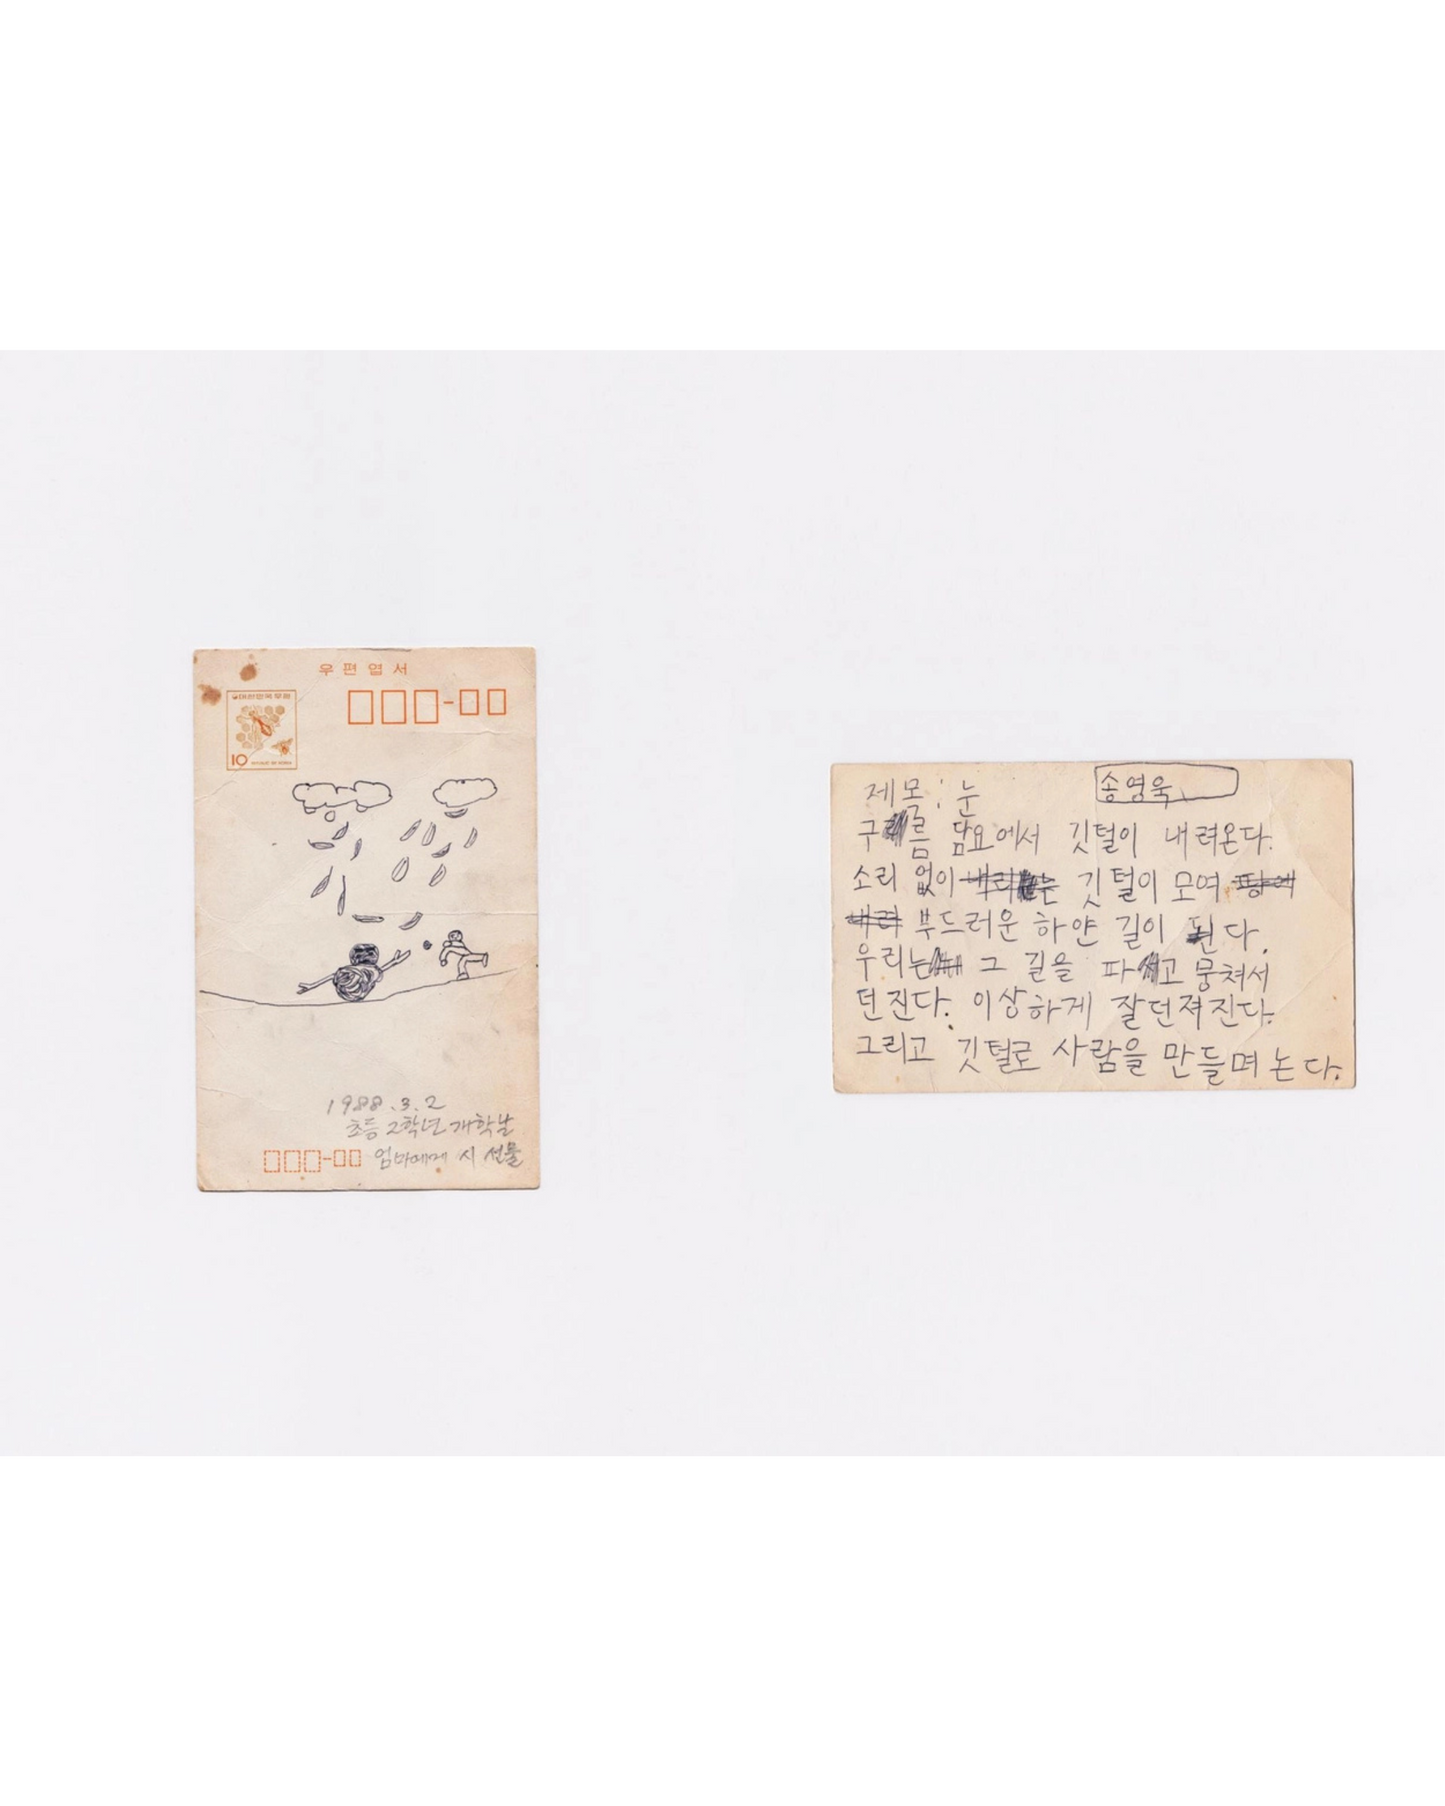 우편엽서
대한민국우표
10
REPUBLIC OF KOREA
1988.3.2
초등 2학년 개학날
엄마에게 시 선물
제목: 눈
송영욱
구름 담요에서 깃털이 내려온다.
소리 없이 깃털이 모여
부드러운 하얀 길이 된다.
우리는 그 길을 파고 뭉쳐서
던진다. 이상하게 잘던져진다.
그리고 깃털로 사람을 만들며 논다.